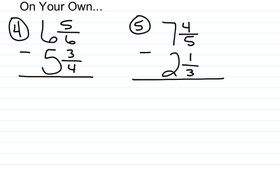 On Your Own...
④ 6 5/6 ⑤ 7 4/5
- 5 3/4 - 2 1/3